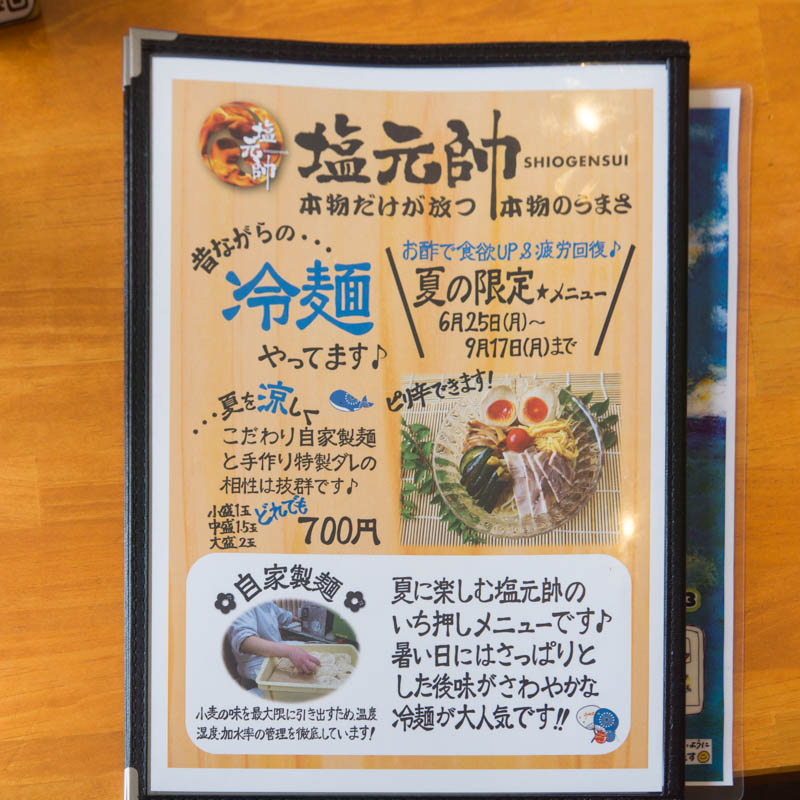 塩元帥
塩元帥 SHIOGENSUI
本物だけが放つ 本物のうまさ
昔ながらの・・・
冷麺
やってます♪
お酢で食欲UP&疲労回復♪
夏の限定★メニュー
6月25日(月)～
9月17日(月)まで
・・・夏を涼しく
こだわり自家製麺
と手作り特製ダレの
相性は抜群です♪
小盛1玉
中盛1.5玉
大盛2玉
どれでも
700円
ピリ辛できます!
自家製麺
小麦の味を最大限に引き出すため、温度
湿度・加水率の管理を徹底しています!
夏に楽しむ塩元帥の
いち押しメニューです♪
暑い日にはさっぱりと
した後味がさわやかな
冷麺が大人気です!!
ように
す